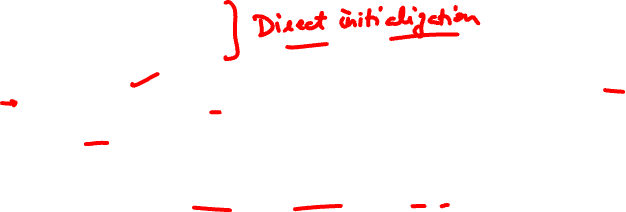 Direct initialization